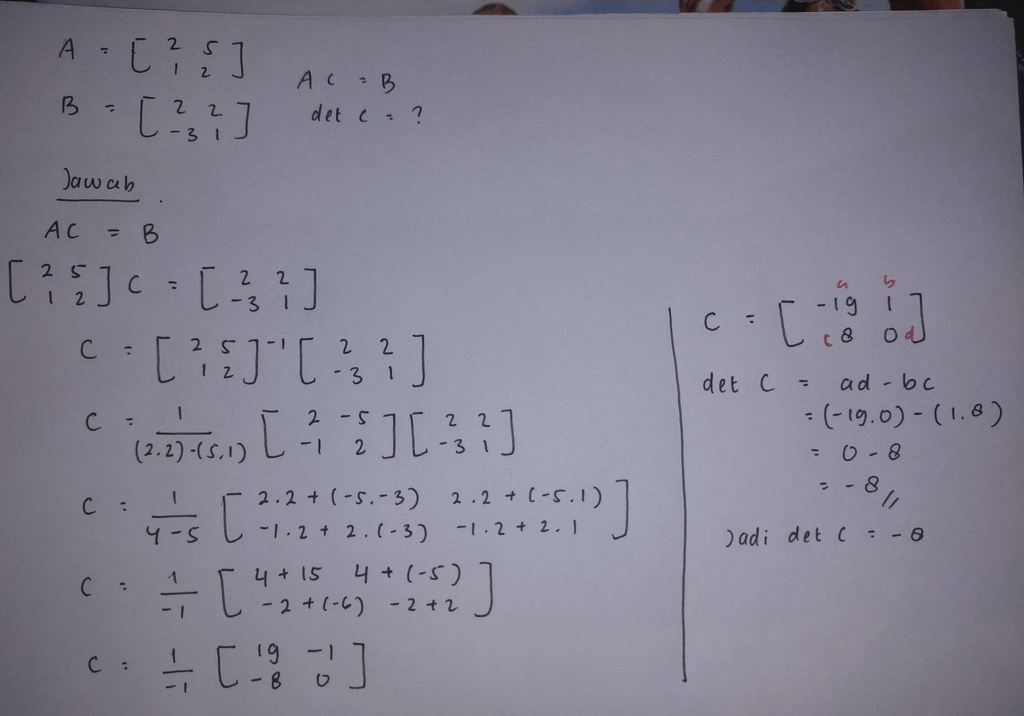 A = [ 2 5
1 2 ]
B = [ 2 2
-3 1 ]
AC = B
det C = ?
Jawab
AC = B
[ 2 5
1 2 ] C = [ 2 2
-3 1 ]
C = [ 2 5
1 2 ]-1 [ 2 2
-3 1 ]
C = 1
(2.2)-(5.1) [ 2 -5
-1 2 ] [ 2 2
-3 1 ]
C = 1
4-5 [ 2.2 + (-5.-3) 2.2 + (-5.1)
-1.2 + 2.(-3) -1.2 + 2.1 ]
C = 1
-1 [ 4 + 15 4 + (-5)
-2 + (-6) -2 + 2 ]
C = 1
-1 [ 19 -1
-8 0 ]
a b
C = [ -19 1
c 8 0 d ]
det C = ad - bc
= (-19.0) - (1.8)
= 0 - 8
= -8 //
Jadi det C = -8